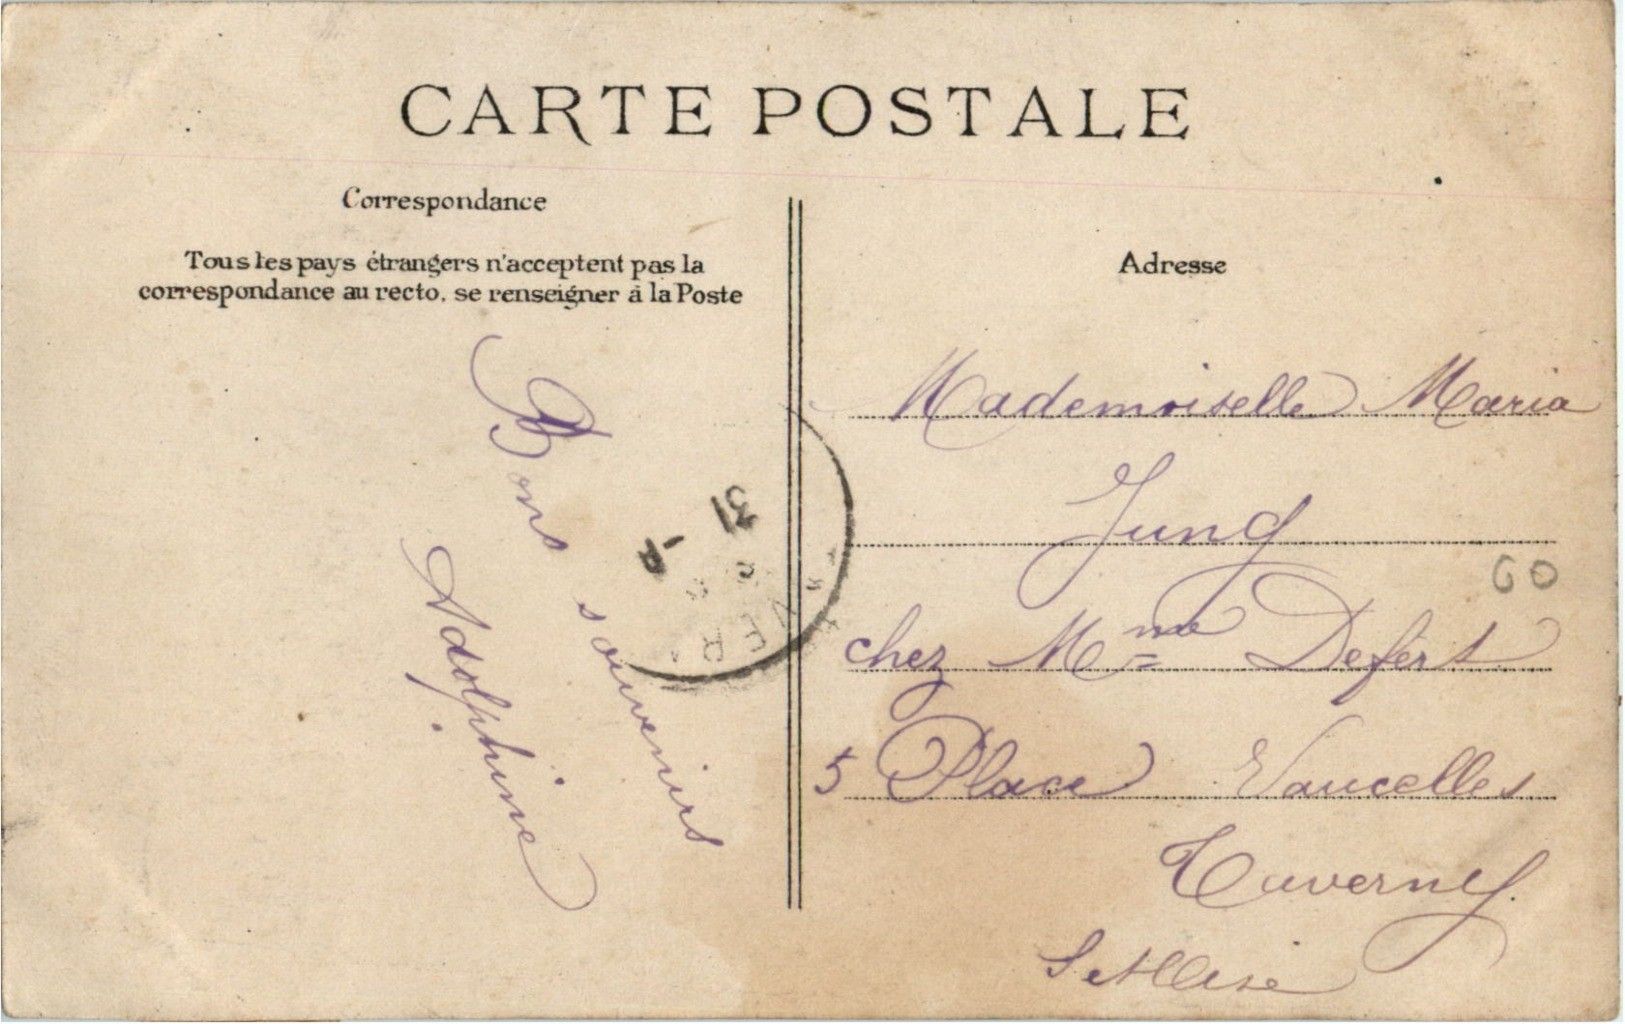 CARTE POSTALE
Correspondance
Tous les pays étrangers n'acceptent pas la
correspondance au recto, se renseigner à la Poste
Bons souvenirs
Adolphine
Adresse
Mademoiselle Maria
Jung
chez Mme Defert
5 Place Vaucelles
Taverny
S et Oise
60
31